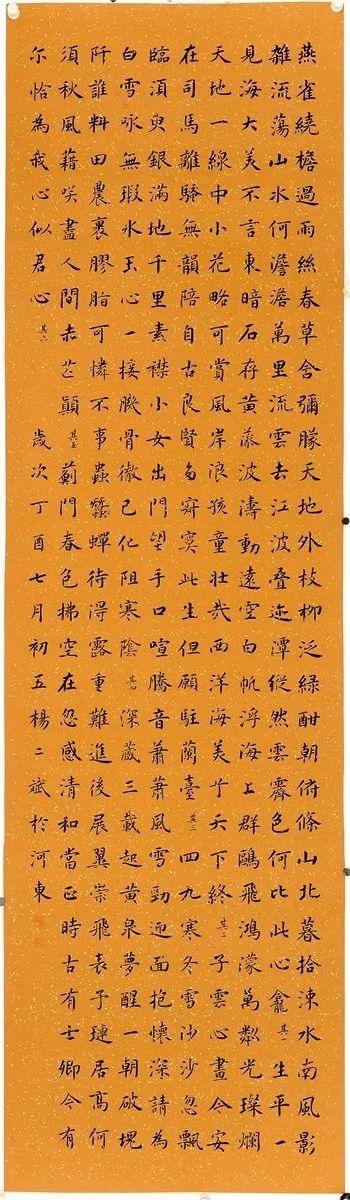 燕雀繞檐過雨絲春草含彌朦天地外枝柳泛綠酣朝俯條山北暮拾涑水南風影
雜流蕩山水何澹澹萬里流雲去江波叠迹潭縱然雲霽色何比此心龕其一生平一
見海大美不言東暗石存黃波濤動遠空白帆浮海上群鷗飛鴻濛萬粼光璨爛
天地一線中小花略可賞風岸浪孩童壯哉西洋海美天下終其二子雲心畫今安
在司馬離騷無韻陪自古良賢多寂寞此生但願駐蘭臺其三四九寒冬雪沙沙忽飄
臨須臾銀滿地千里素襟小女出門望手口喧騰音蕭蕭風雪勁迎面抱懷深請為
白雪咏無瑕冰玉心一接骨徹已化阻寒陰其四深藏三載起黃泉夢醒一朝破塊
阡誰料田農裹膠脂可憐不事蟲蠶蟬待得露重難進後展翼崇飛表子璉居高何
須秋風藉咲盡人間赤芒顛其五薊門春色拂空在忽感清和當正時古有士卿今有
尓恰為我心似君心其六 歲次丁酉七月初五楊二斌於河東